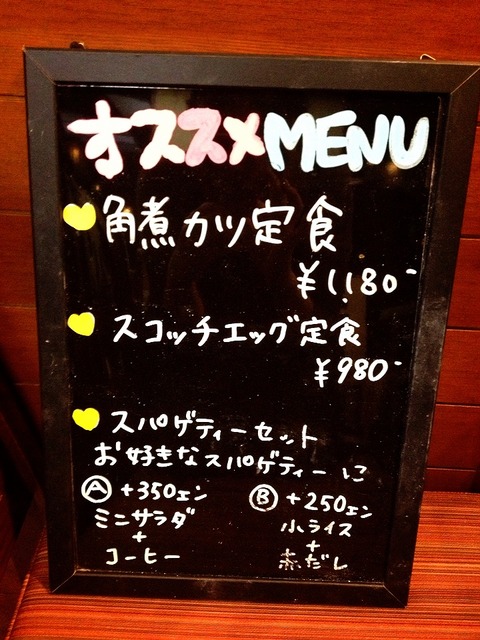 オススメMENU
角煮カツ定食
¥1,180-
スコッチエッグ定食
¥980-
スパゲティーセット
お好きなスパゲティーに
Ⓐ +350エン
ミニサラダ
+
コーヒー
Ⓑ +250エン
小ライス
+
赤だし